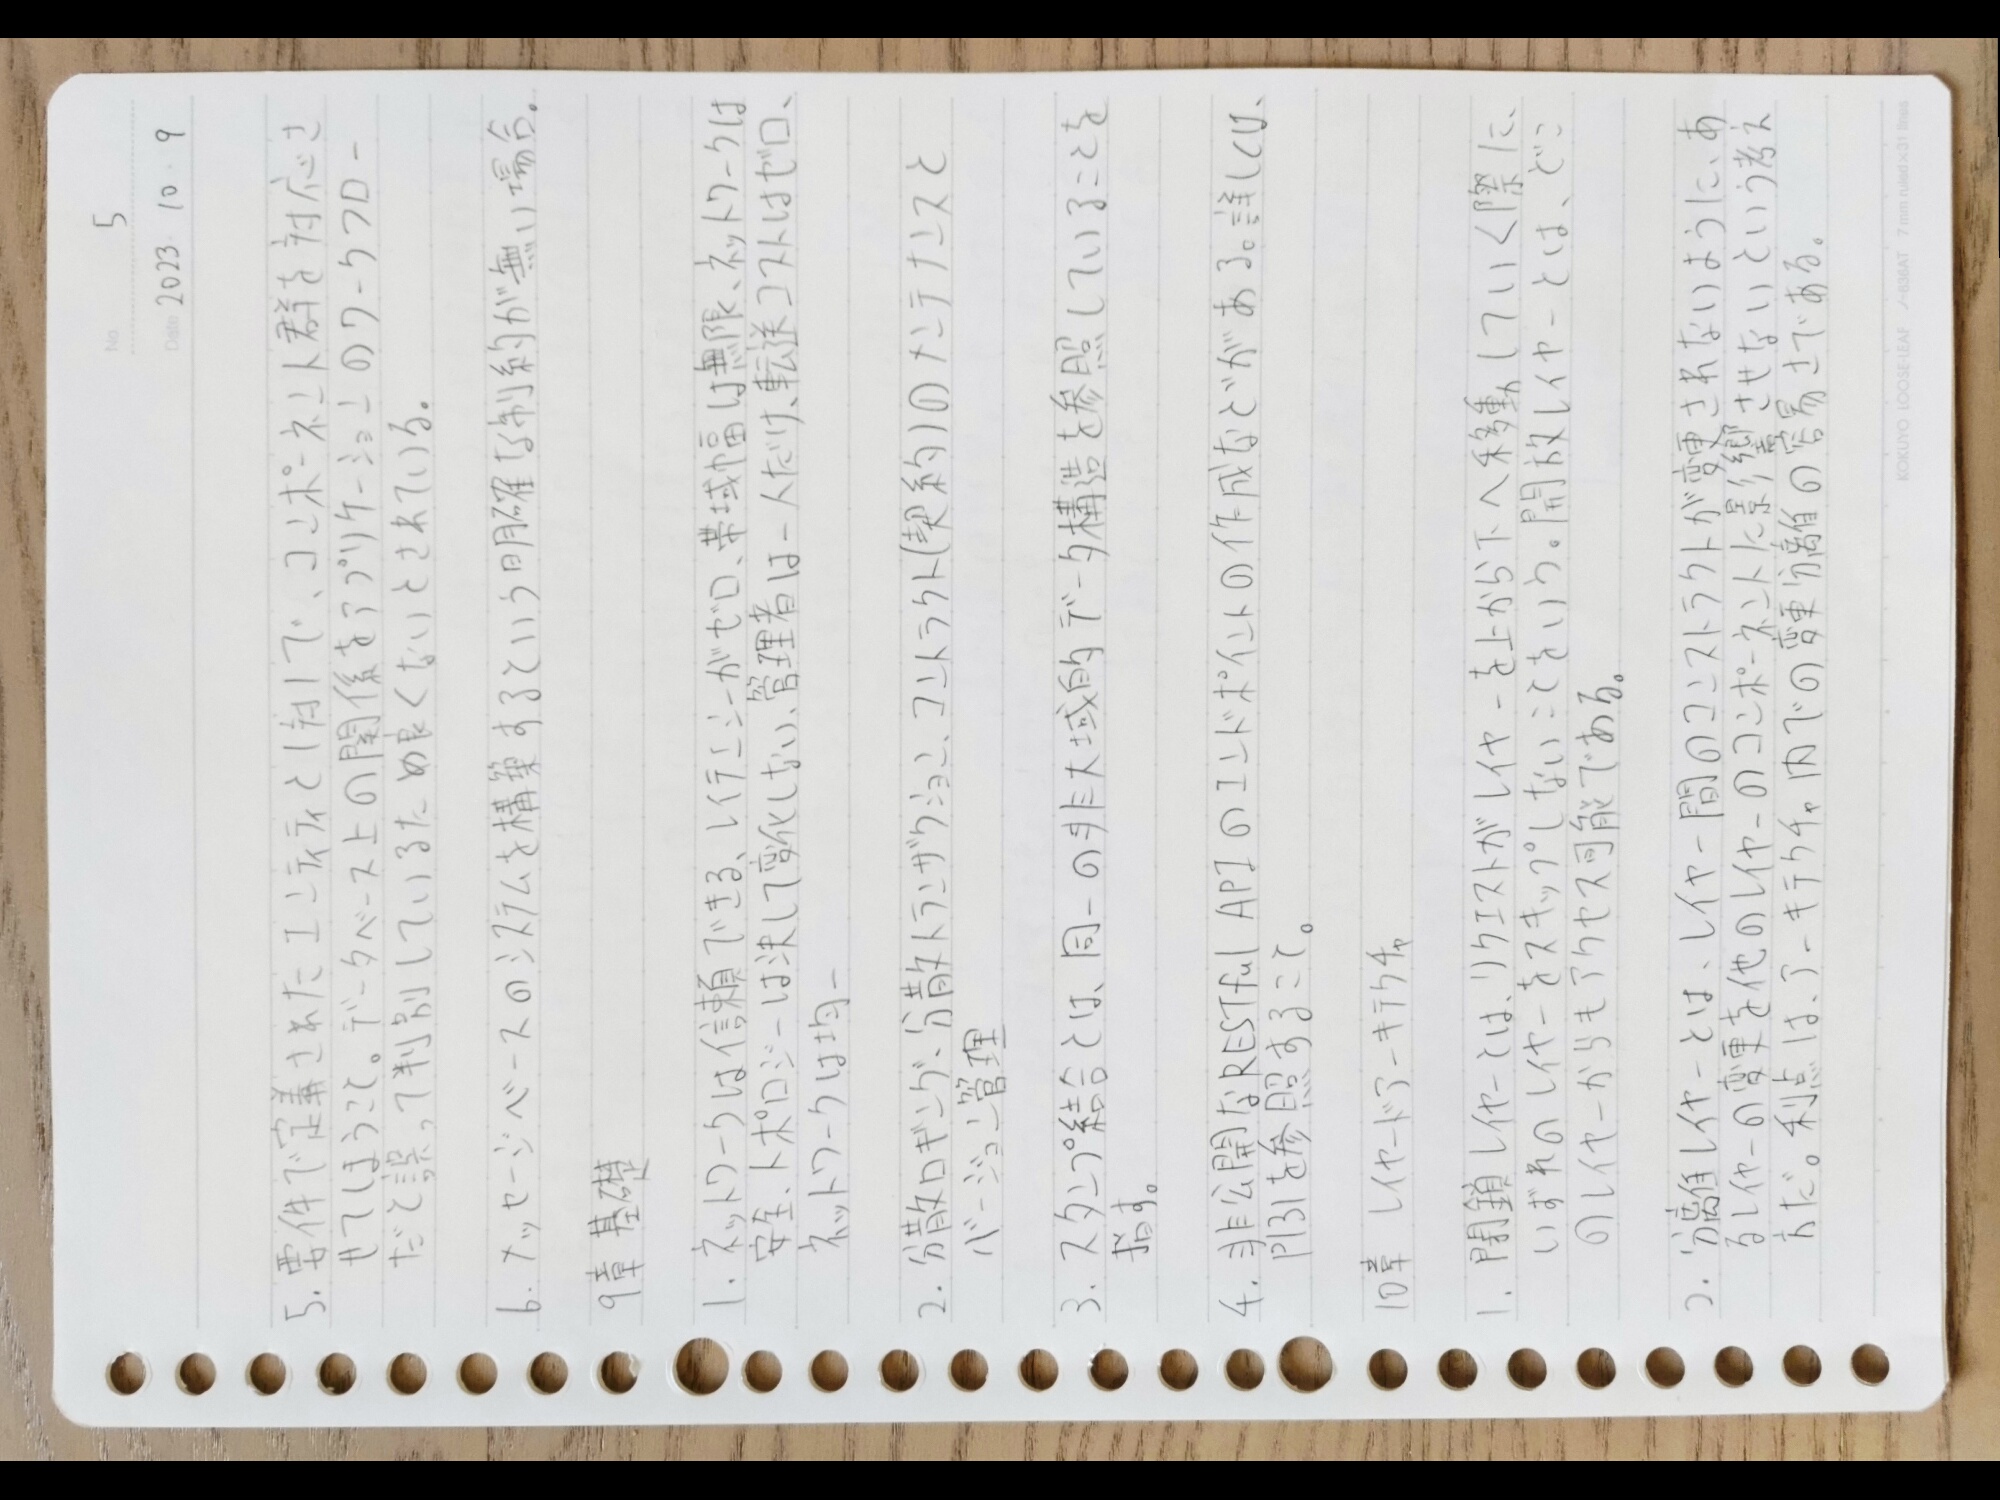 No. 5
Date 2023 · 10 · 9
5. 要件で定義されたエンティティと1対1で、コンポーネント群を対応さ
せてしまうこと。データベース上の関係をアプリケーションのワークフロー
だと誤って判別しているため良くないとされている。
6. メッセージベースのシステムを構築するという明確な制約が無い場合。
9章 基礎
1. ネットワークは信頼できる、レイテンシーがゼロ、帯域幅は無限、ネットワークは
安全、トポロジーは決して変化しない、管理者は一人だけ、転送コストはゼロ、
ネットワークは均一
2. 分散ロギング、分散トランザクション、コントラクト(契約)のメンテナンスと
バージョン管理
3. スタンプ結合とは、同一の非大域的データ構造を参照していることを
指す。
4. 非公開なRESTful APIのエンドポイントの作成などがある。詳しくは、
P131を参照すること。
10章 レイヤードアーキテクチャ
1. 閉鎖レイヤーとは、リクエストがレイヤーを上から下へ移動していく際に、
いずれのレイヤーをスキップしないことをいう。開放レイヤーとは、どこ
のレイヤーからもアクセス可能である。
2. 分離レイヤーとは、レイヤー間のコンストラクトが変更されないように、あ
るレイヤーの変更を他のレイヤーのコンポーネントに影響させないという考え
方だ。利点は、アーキテクチャ内での変更分離の容易さである。
KOKUYO LOOSE-LEAF ノ-836AT 7 mm ruled×31 lines